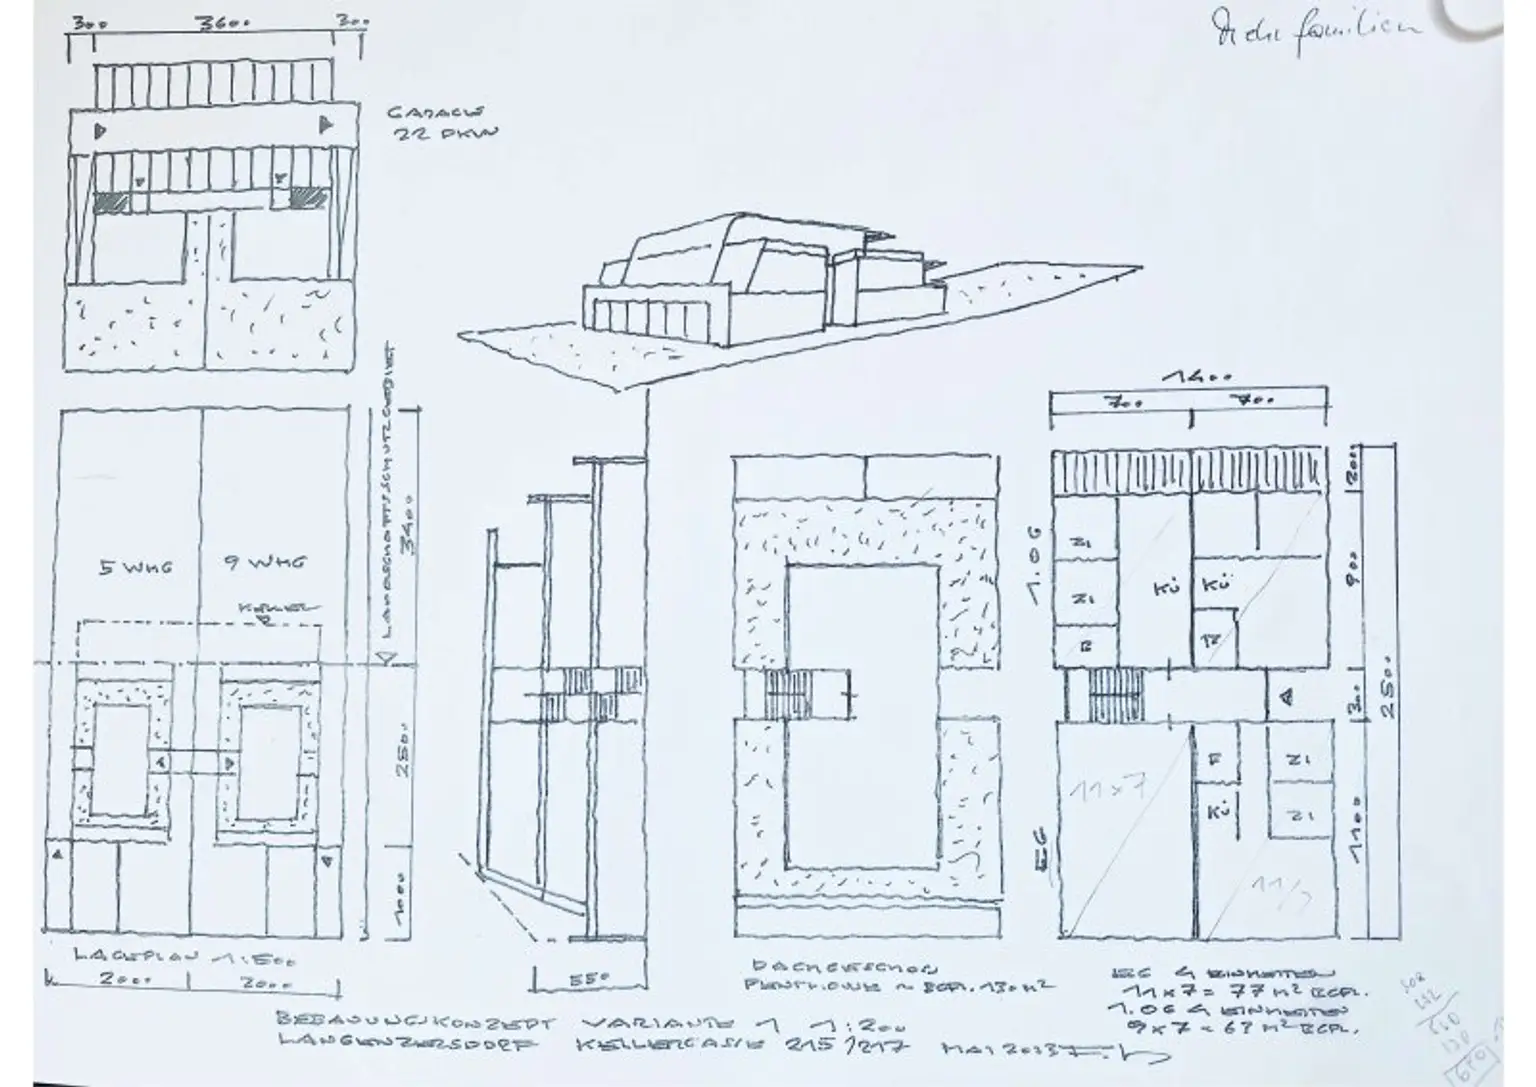 300 3600 300
Mehrfamilien
GARAGE
22 PKW
LANDSCHAFTSSCHUTZGEBIET
3400
5 WHG 9 WHG
KELLER
2500
1000
LAGEPLAN 1:500
2000 2000
550
DACHGESCHOS
PENTHOUSE ~ BGFL. 130 M²
1400
700 700
1.OG
200
ZI
ZI
KÜ KÜ
B
900
300
2500
ZI
KÜ
ZI
11x7
EG
1100
EG 4 EINHEITEN
11 x 7 = 77 M² BGFL.
1.OG 4 EINHEITEN
9 x 7 = 63 M² BGFL.
308
BEBAUUNGSKONZEPT VARIANTE 1 1:200
LANGENZERSDORF KELLERGASSE 215/217 MAI 2023